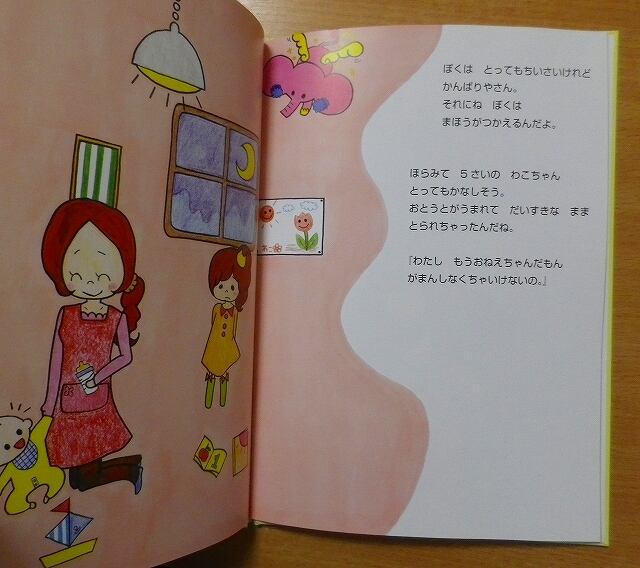 ぼくは　とってもちいさいけれど
がんばりやさん。
それにね　ぼくは
まほうがつかえるんだよ。
ほらみて　５さいの　わこちゃん
とってもかなしそう。
おとうとがうまれて　だいすきな　まま
とられちゃったんだね。
『わたし　もうおねえちゃんだもん
がまんしなくちゃいけないの。』
わこ